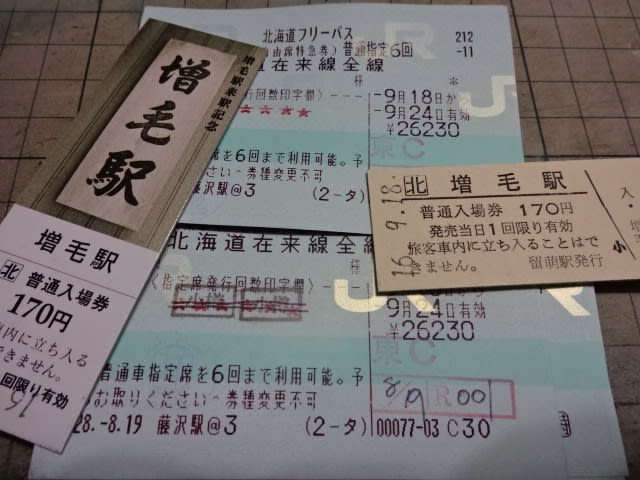 増毛駅来駅記念
増毛駅
増毛駅
北 普通入場券
170円
車内に立ち入る
できません。
回限り有効
北海道フリーパス
212
由席特急券)普通指定6回
-11
道在来線全線
様
行回数印字欄>---
-9月18日から
-9月24日有効
¥26230
席を6回まで利用可能。予
さい 券種変更不可
藤沢駅@3
(2-タ)
北 増毛駅
普通入場券 170円
発売当日1回限り有効
旅客車内に立ち入ることはで
きません。 留萌駅発行
16.9.18.
北海道在来線全線
様
<指定席発行回数印字欄>---
9月24日有効
¥26230
普通車指定席を6回まで利用可能。予
お取りください 券種変更不可
8/19
R00
28.-8.19 藤沢駅@3
(2-タ)
00077-03 C30